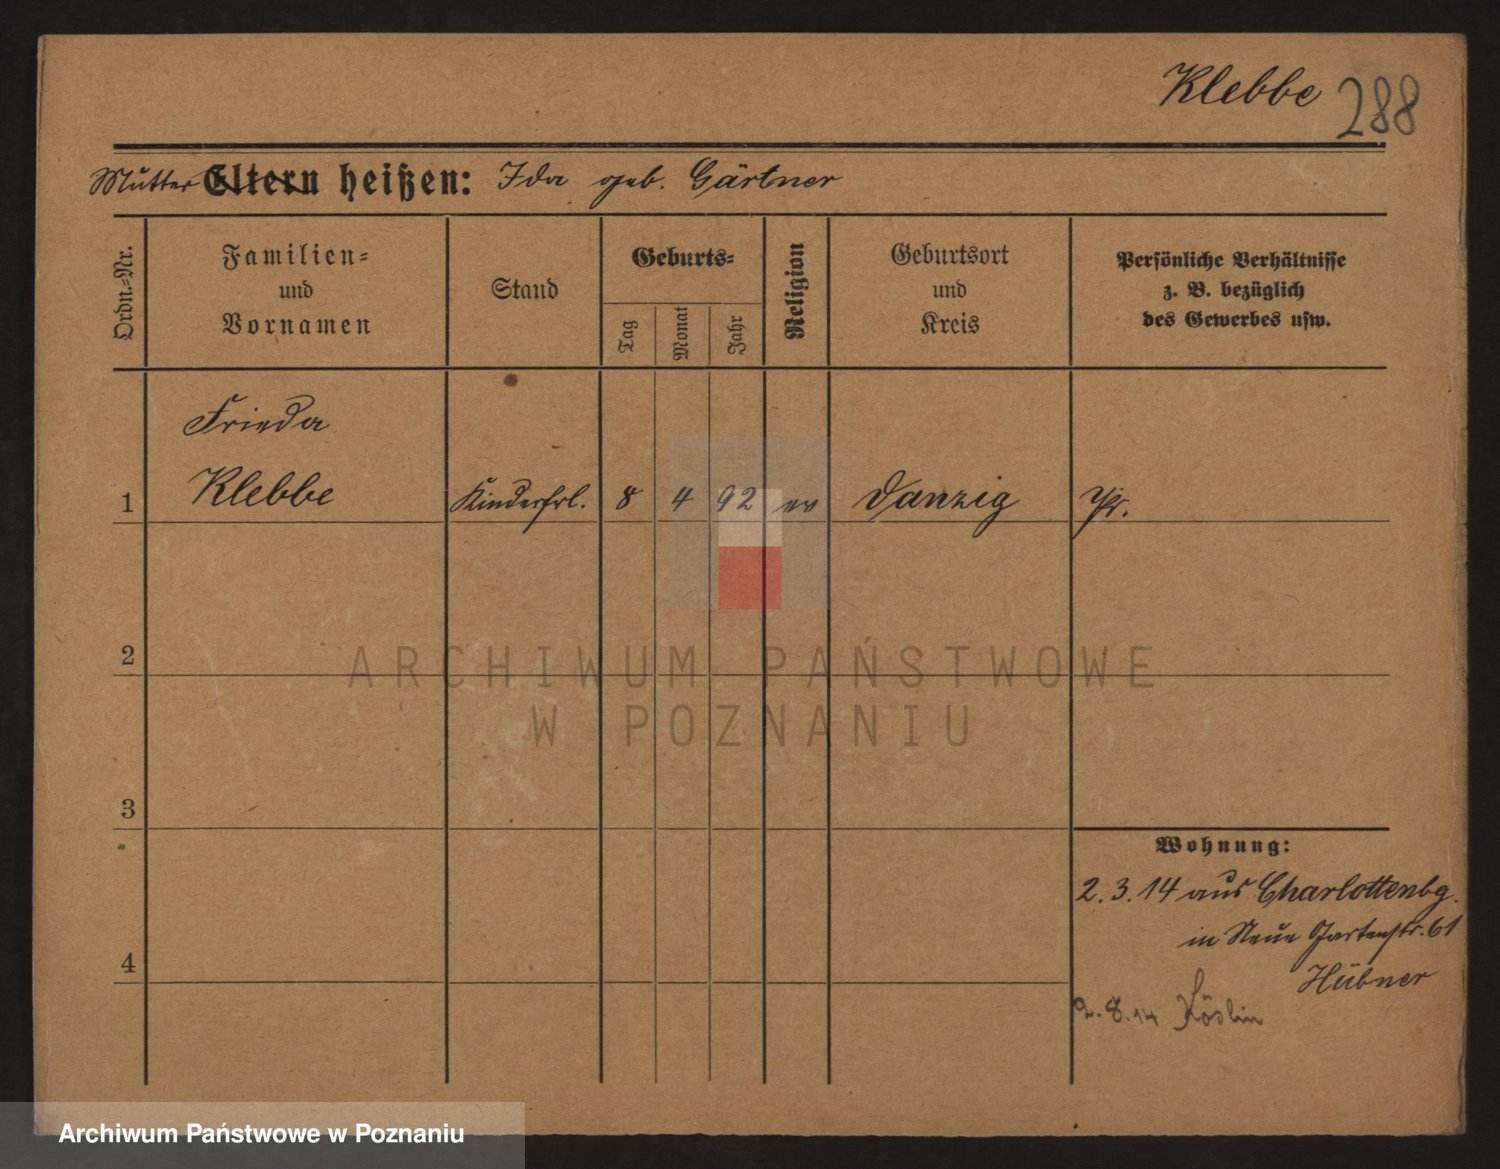 Klebbe 288
Mutter Eltern heißen: Ida geb. Gärtner
Ordn.-Nr.
Familien-
und
Vornamen
Stand
Geburts-
Tag
Monat
Jahr
Religion
Geburtsort
und
Kreis
Persönliche Verhältnisse
z. B. bezüglich
des Gewerbes usw.
Frieda
1 Klebbe Kinderfrl. 8 4 92 ev Danzig Pr.
2
ARCHIWUM PAŃSTWOWE
W POZNANIU
3
Wohnung:
2.3.14 aus Charlottenbg.
in Neue Gartenstr. 61
4
Hübner
2.8.14 Köslin
Archiwum Państwowe w Poznaniu